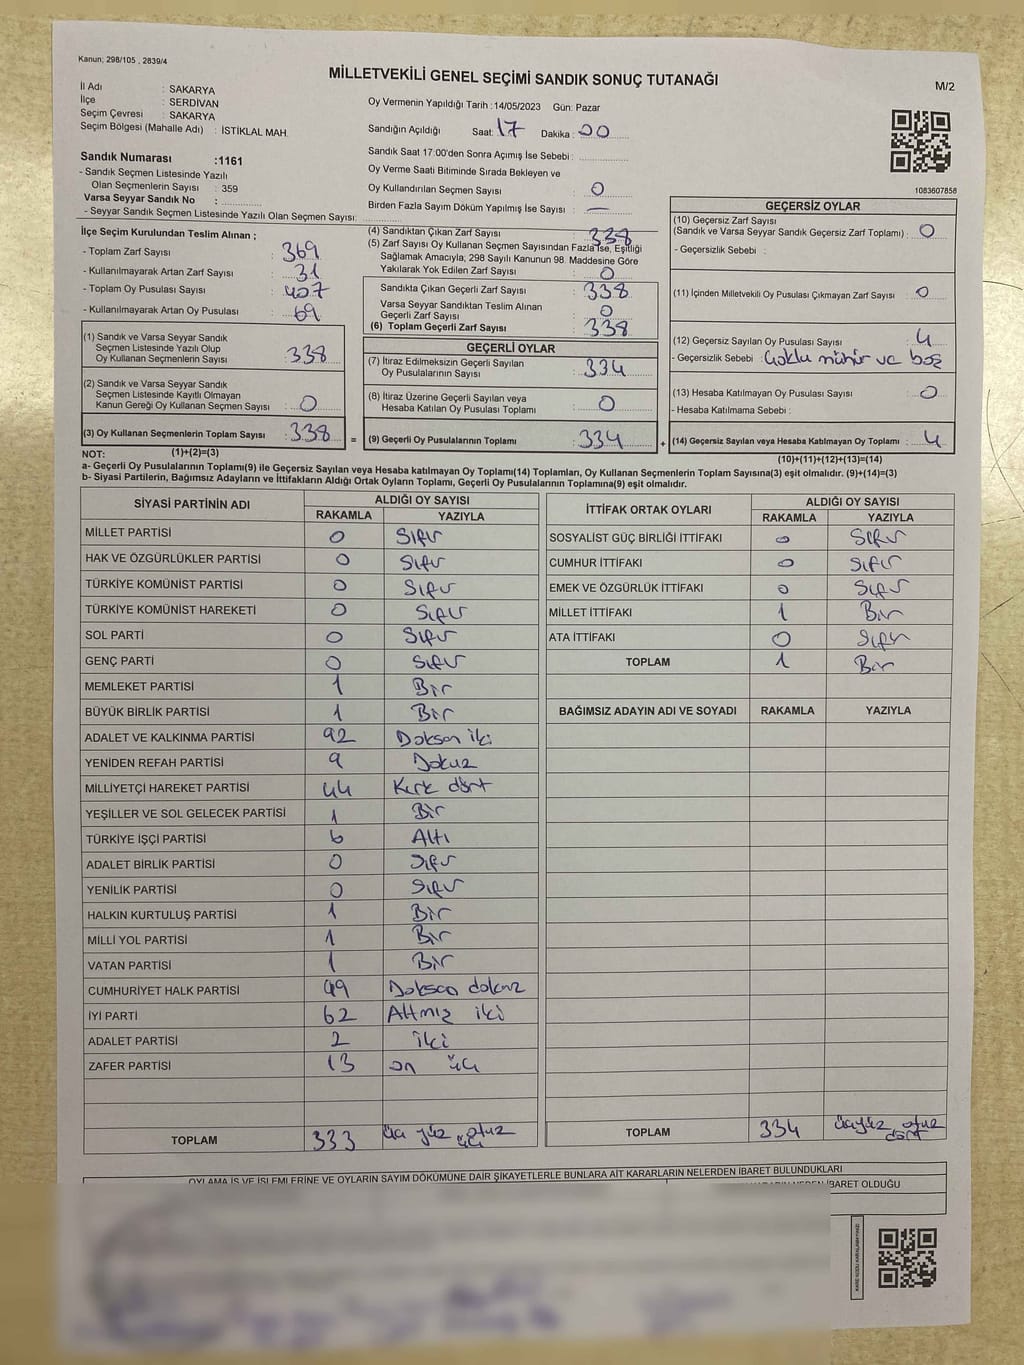 Kanun; 298/105 , 2839/4
MİLLETVEKİLİ GENEL SEÇİMİ SANDIK SONUÇ TUTANAĞI
M/2
İl Adı : SAKARYA
İlçe : SERDİVAN
Seçim Çevresi : SAKARYA
Seçim Bölgesi (Mahalle Adı) : İSTİKLAL MAH.
Oy Vermenin Yapıldığı Tarih : 14/05/2023 Gün: Pazar
Sandığın Açıldığı Saat: 17 Dakika : 00
Sandık Numarası :1161
- Sandık Seçmen Listesinde Yazılı
Olan Seçmenlerin Sayısı : 359
Varsa Seyyar Sandık No :
- Seyyar Sandık Seçmen Listesinde Yazılı Olan Seçmen Sayısı:
Sandık Saat 17:00'den Sonra Açımış İse Sebebi :
Oy Verme Saati Bitiminde Sırada Bekleyen ve
Oy Kullandırılan Seçmen Sayısı : 0
Birden Fazla Sayım Döküm Yapılmış İse Sayısı : —
1083607858
İlçe Seçim Kurulundan Teslim Alınan ;
- Toplam Zarf Sayısı : 369
- Kullanılmayarak Artan Zarf Sayısı : 31
- Toplam Oy Pusulası Sayısı : 407
- Kullanılmayarak Artan Oy Pusulası : 69
(1) Sandık ve Varsa Seyyar Sandık
Seçmen Listesinde Yazılı Olup
Oy Kullanan Seçmenlerin Sayısı : 338
(2) Sandık ve Varsa Seyyar Sandık
Seçmen Listesinde Kayıtlı Olmayan
Kanun Gereği Oy Kullanan Seçmen Sayısı : 0
(3) Oy Kullanan Seçmenlerin Toplam Sayısı : 338
(4) Sandıktan Çıkan Zarf Sayısı : 338
(5) Zarf Sayısı Oy Kullanan Seçmen Sayısından Fazla İse, Eşitliği
Sağlamak Amacıyla; 298 Sayılı Kanunun 98. Maddesine Göre
Yakılarak Yok Edilen Zarf Sayısı : 0
Sandıkta Çıkan Geçerli Zarf Sayısı : 338
Varsa Seyyar Sandıktan Teslim Alınan
Geçerli Zarf Sayısı : 0
(6) Toplam Geçerli Zarf Sayısı : 338
GEÇERLİ OYLAR
(7) İtiraz Edilmeksizin Geçerli Sayılan
Oy Pusulalarının Sayısı : 334
(8) İtiraz Üzerine Geçerli Sayılan veya
Hesaba Katılan Oy Pusulası Toplamı : 0
= (9) Geçerli Oy Pusulalarının Toplamı : 334
GEÇERSİZ OYLAR
(10) Geçersiz Zarf Sayısı
(Sandık ve Varsa Seyyar Sandık Geçersiz Zarf Toplamı) : 0
- Geçersizlik Sebebi :
(11) İçinden Milletvekili Oy Pusulası Çıkmayan Zarf Sayısı : 0
(12) Geçersiz Sayılan Oy Pusulası Sayısı : 4
- Geçersizlik Sebebi : Çoklu mühür ve boş
(13) Hesaba Katılmayan Oy Pusulası Sayısı : 0
- Hesaba Katılmama Sebebi :
+ (14) Geçersiz Sayılan veya Hesaba Katılmayan Oy Toplamı : 4
NOT: (1)+(2)=(3)
(10)+(11)+(12)+(13)=(14)
a- Geçerli Oy Pusulalarının Toplamı(9) ile Geçersiz Sayılan veya Hesaba katılmayan Oy Toplamı(14) Toplamları, Oy Kullanan Seçmenlerin Toplam Sayısına(3) eşit olmalıdır. (9)+(14)=(3)
b- Siyasi Partilerin, Bağımsız Adayların ve İttifakların Aldığı Ortak Oyların Toplamı, Geçerli Oy Pusulalarının Toplamına(9) eşit olmalıdır.
SİYASİ PARTİNİN ADI ALDIĞI OY SAYISI
RAKAMLA YAZIYLA
MİLLET PARTİSİ 0 Sıfır
HAK VE ÖZGÜRLÜKLER PARTİSİ 0 Sıfır
TÜRKİYE KOMÜNİST PARTİSİ 0 Sıfır
TÜRKİYE KOMÜNİST HAREKETİ 0 Sıfır
SOL PARTİ 0 Sıfır
GENÇ PARTİ 0 Sıfır
MEMLEKET PARTİSİ 1 Bir
BÜYÜK BİRLİK PARTİSİ 1 Bir
ADALET VE KALKINMA PARTİSİ 92 Doksan iki
YENİDEN REFAH PARTİSİ 9 Dokuz
MİLLİYETÇİ HAREKET PARTİSİ 44 Kırk dört
YEŞİLLER VE SOL GELECEK PARTİSİ 1 Bir
TÜRKİYE İŞÇİ PARTİSİ 6 Altı
ADALET BİRLİK PARTİSİ 0 Sıfır
YENİLİK PARTİSİ 0 Sıfır
HALKIN KURTULUŞ PARTİSİ 1 Bir
MİLLİ YOL PARTİSİ 1 Bir
VATAN PARTİSİ 1 Bir
CUMHURİYET HALK PARTİSİ 99 Doksan dokuz
İYİ PARTİ 62 Altmış iki
ADALET PARTİSİ 2 İki
ZAFER PARTİSİ 13 on üç
TOPLAM 333 üç yüz otuz üç
İTTİFAK ORTAK OYLARI ALDIĞI OY SAYISI
RAKAMLA YAZIYLA
SOSYALİST GÜÇ BİRLİĞİ İTTİFAKI 0 Sıfır
CUMHUR İTTİFAKI 0 Sıfır
EMEK VE ÖZGÜRLÜK İTTİFAKI 0 Sıfır
MİLLET İTTİFAKI 1 Bir
ATA İTTİFAKI 0 Sıfır
TOPLAM 1 Bir
BAĞIMSIZ ADAYIN ADI VE SOYADI RAKAMLA YAZIYLA
TOPLAM 334 üçyüz otuz dört
OYLAMA İŞ VE İŞLEMLERİNE VE OYLARIN SAYIM DÖKÜMÜNE DAİR ŞİKAYETLERLE BUNLARA AİT KARARLARIN NELERDEN İBARET BULUNDUKLARI
NEDEN İBARET OLDUĞU